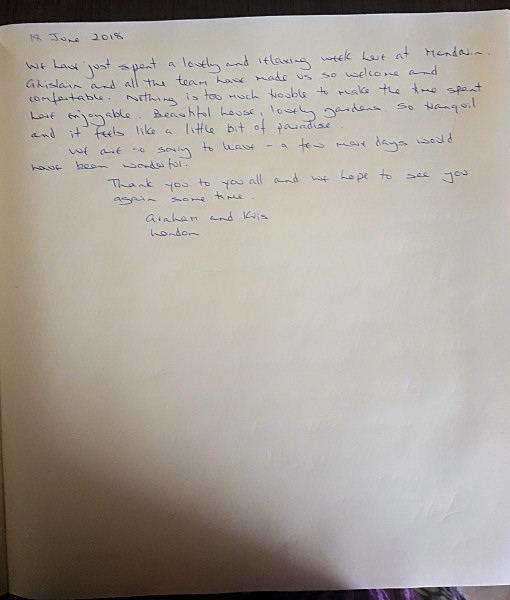 18 June 2018
We have just spent a lovely and relaxing week here at Mandain.
Ghislain and all the team have made us so welcome and
comfortable. Nothing is too much trouble to make the time spent
here enjoyable. Beautiful house, lovely gardens so tranquil
and it feels like a little bit of paradise.
We are so sorry to leave - a few more days would
have been wonderful.
Thank you to you all and we hope to see you
again some time.
Graham and Kris
London